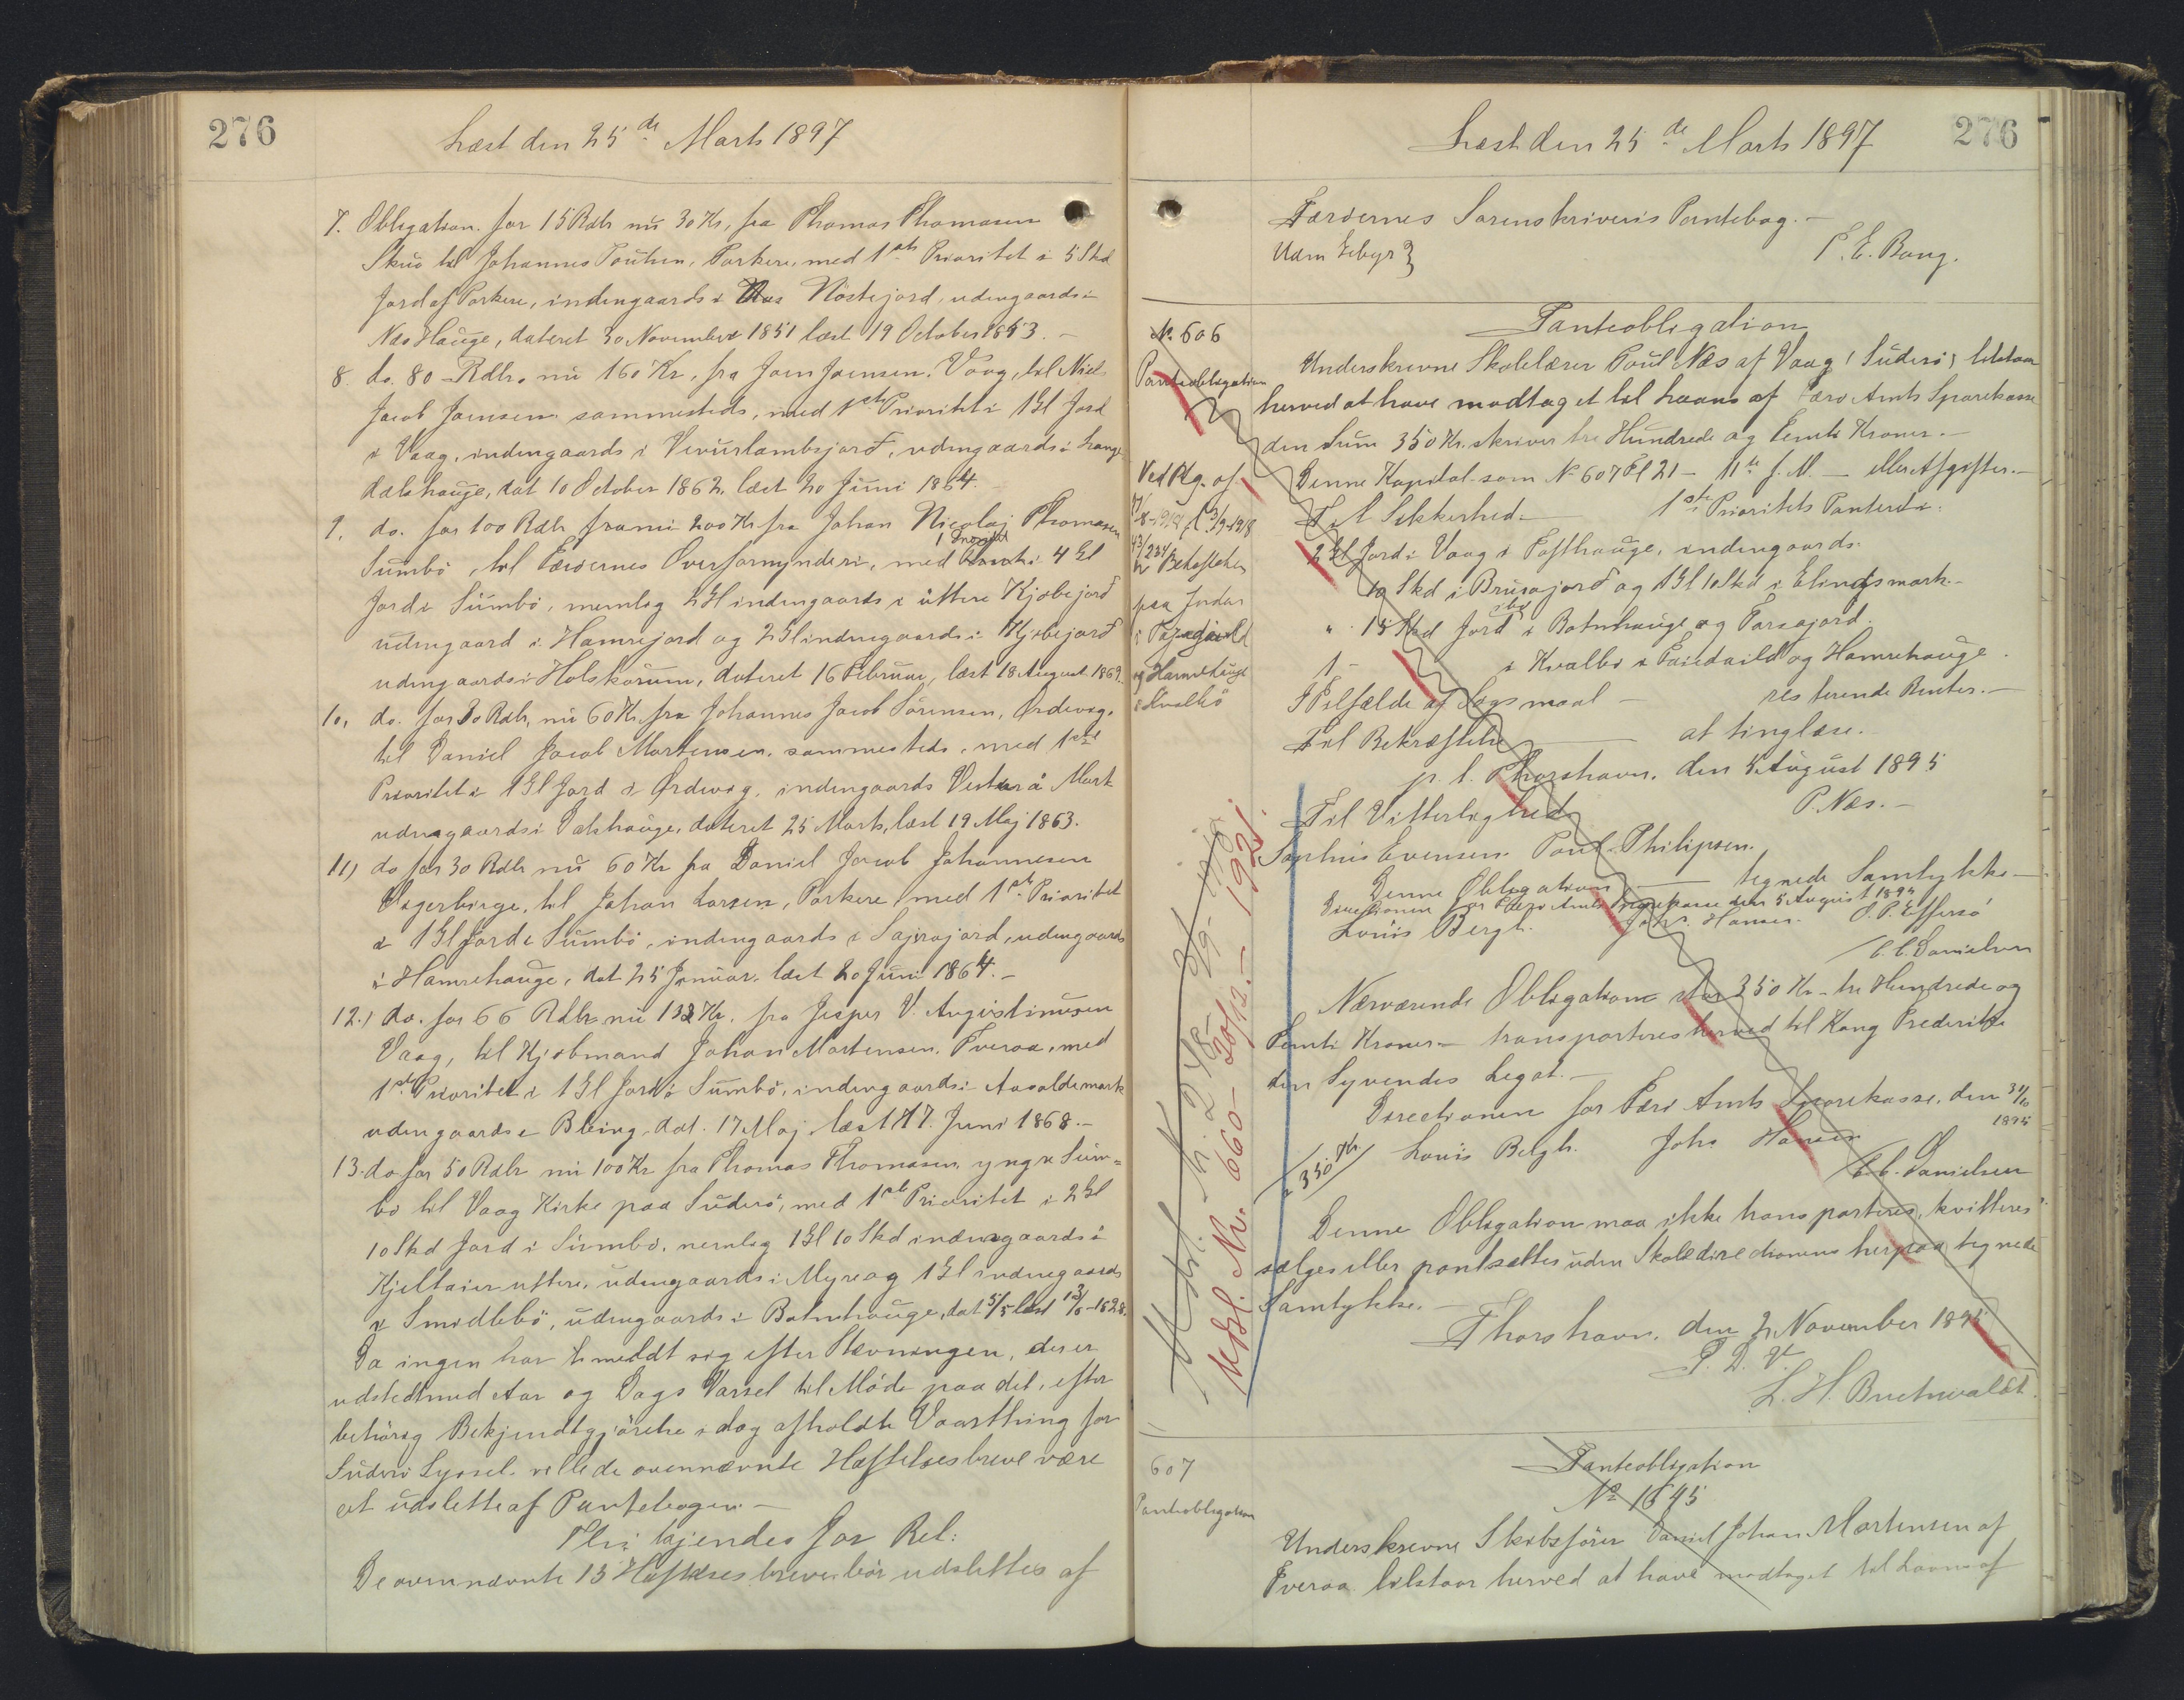 276
Læst den 25de Marts 1897
7. Obligation for 15 Rdlr nu 30 Kr, fra Thomas Thomasen
Skuo til Johannes Poulsen, Porkere, med 1ste Prioritet i 5 Skd
Jord af Porkere, indengaards i Nöstejord, udengaards i
Næs Hauge, dateret 30 November 1851 læst 19 October 1853.
8. do. 80 Rdlr. nu 160 Kr, fra Joen Joensen, Vaag, til Niels
Jacob Joensen sammesteds, med 1ste Prioritet i 1 Gl Jord
i Vaag, indengaards i udengaards i Lange
dals hauge, dat 10 October 1862, læst 20 Juni 1864.
9. do. for 100 Rdlr nu 200 Kr fra Johan Nicolaj Thomasen
Sumbö, til Færöernes Overformynderi, med 1 Prioritet i 4 Gl
Jord i Sumbö, nemlig 2 Gl indengaards i uttere Kjøbejord
udengaard i Hamrejord og 2 Gl indengaards i Kjøbejord
udengaards i Holskorum, dateret 16 Februar, læst 18 August 1869.
10, do. for 30 Rdlr, nu 60 Kr fra Johannes Jacob Sörensen, Ørdevig,
til Daniel Jacob Mortensen, sammesteds, med 1ste
Prioritet i 1 Gl Jord i Ørdevig, indengaards Vesturå Mark
udengaards i Dalshauge, dateret 25 Marts, læst 19 Maj 1863.
11) do for 30 Rdlr nu 60 Kr fra Daniel Jacob Johannesen
Vagerbirge, til Johan Larsen, Porkere, med 1ste Prioritet
i 1 Gl Jord i Sumbö, indengaards i Sajrajord, udengaards
i Hamrehauge, dat 25 Januar, læst 20 Juni 1864.
12.) do. for 66 Rdlr nu 132 Kr. fra Jesper V. Augustinusen
Vaag, til Kjøbmand Johan Mortensen, Tveraa, med
1ste Prioritet i 1 Gl Jord i Sumbö, indengaards i Aasoldemark
udengaards i Bleing, dat. 17 Maj læst 17. Juni 1868.
13. do for 50 Rdlr nu 100 Kr fra Thomas Thomasen, yngre Sum-
bö til Vaag Kirke paa Suderö, med 1ste Prioritet i 2 Gl
10 Skd Jord i Sumbö, nemlig 1 Gl 10 Skd indengaards i
Kjeltaier uttere, udengaards i Myre og 1 Gl indengaards
i Smidlebö, udengaards i Botnhauge, dat 5/5 læst
Da ingen har meldt sig efter Stævningen, der er
udstedt med Aar og Dags Varsel til Möde paa det, efter
behörig Bekjendtgjörelse i dag afholdte Vaarthing for
Suderö Syssel, ville de ovennævnte Hæftelsesbreve være
at udslette af Pantebogen.
Thi kjendes for Ret:
De ovennævnte 13 Hæftelsesbreve bör udslettes af
276
Læst den 25de Marts 1897
Færöernes Sorenskriveris Pantebog.
Uden Gebyr}
P. E. Bang.
No. 606
Pantobligation
Panteobligation
Underskrevne Skolelærer Poul Næs af Vaag (Suderö) tilstaar
herved at have modtaget til Laans af Færö Amts Sparekasse
den Sum 350 Kr. skriver tre Hundrede og Femti Kroner.
Denne Kapital som No 607 Fl 21 - 11te J. M. - eller Afgifter.
Til Sikkerhed - 1ste Prioritets Panteret i.
2 Gl Jord i Vaag i Tofthauge, indengaards
10 Skd i Brusajord og 1 Gl 10 Skd i Elingsmark.
" 15 Skd Jord i Botnhauge og Torsajord.
1 - i Kvalbö i og Hamrehauge.
I Tilfælde af Søgsmaal - resterende Renter.
Til Bekræftelse - at tinglæse.
p. t. Thorshavn, den 5 August 1895
P. Næs.
Til Vitterlighed
Sophus Evensen. Poul Philipsen.
Denne Obligation - tegnede Samtykke -
Directionen for Færö Amts Sparekasse den 5 August 1895
Louis Bergh. Johs. Hansen. P. P. Effersö
C. C. Danielsen
Nærværende Obligation stor 350 Kr - tre Hundrede og
Femti Kroner - transporteres herved til Kong Frederik
den Syvendes Legat.
Directionen for Færö Amts Sparekasse, den 31/10
1895
/: 350 Kr/ Louis Bergh. Johs Hansen
C. C. Danielsen
Denne Obligation maa ikke transporteres, kvitteres
sælges eller pantsættes uden Skoledirectionens herpaa tegnede
Samtykke.
Thorshavn, den 2 November 1895
P. D. V.
L. H. Buchwaldt.
Ved Rtg. af
Behæftelsen
paa Jorden
i
og Hamrehauge
i Kvalbö
Udsl. Nr. 660 - 30/12. - 1921.
607
Panteobligation
Panteobligation
No 1645
Underskrevne Skibsförer Daniel Johan Mortensen af
Tveraa tilstaar herved at have modtaget til Laans af